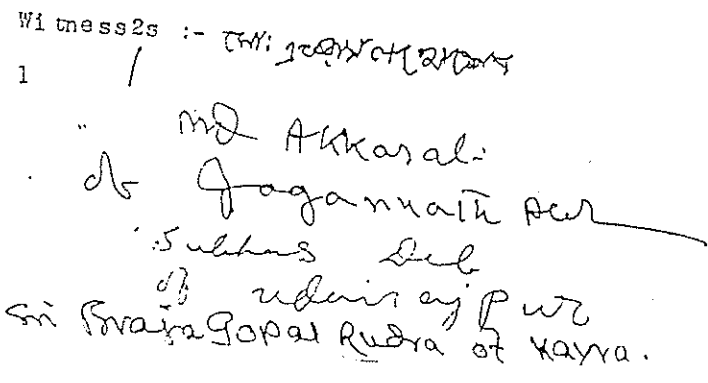 Witness2s :- মোঃ
1
Md Akkasali
of Jagannath Pur
Subhas Deb
of udairajpur
Sri BrajaGopal Rudra of Kayra.